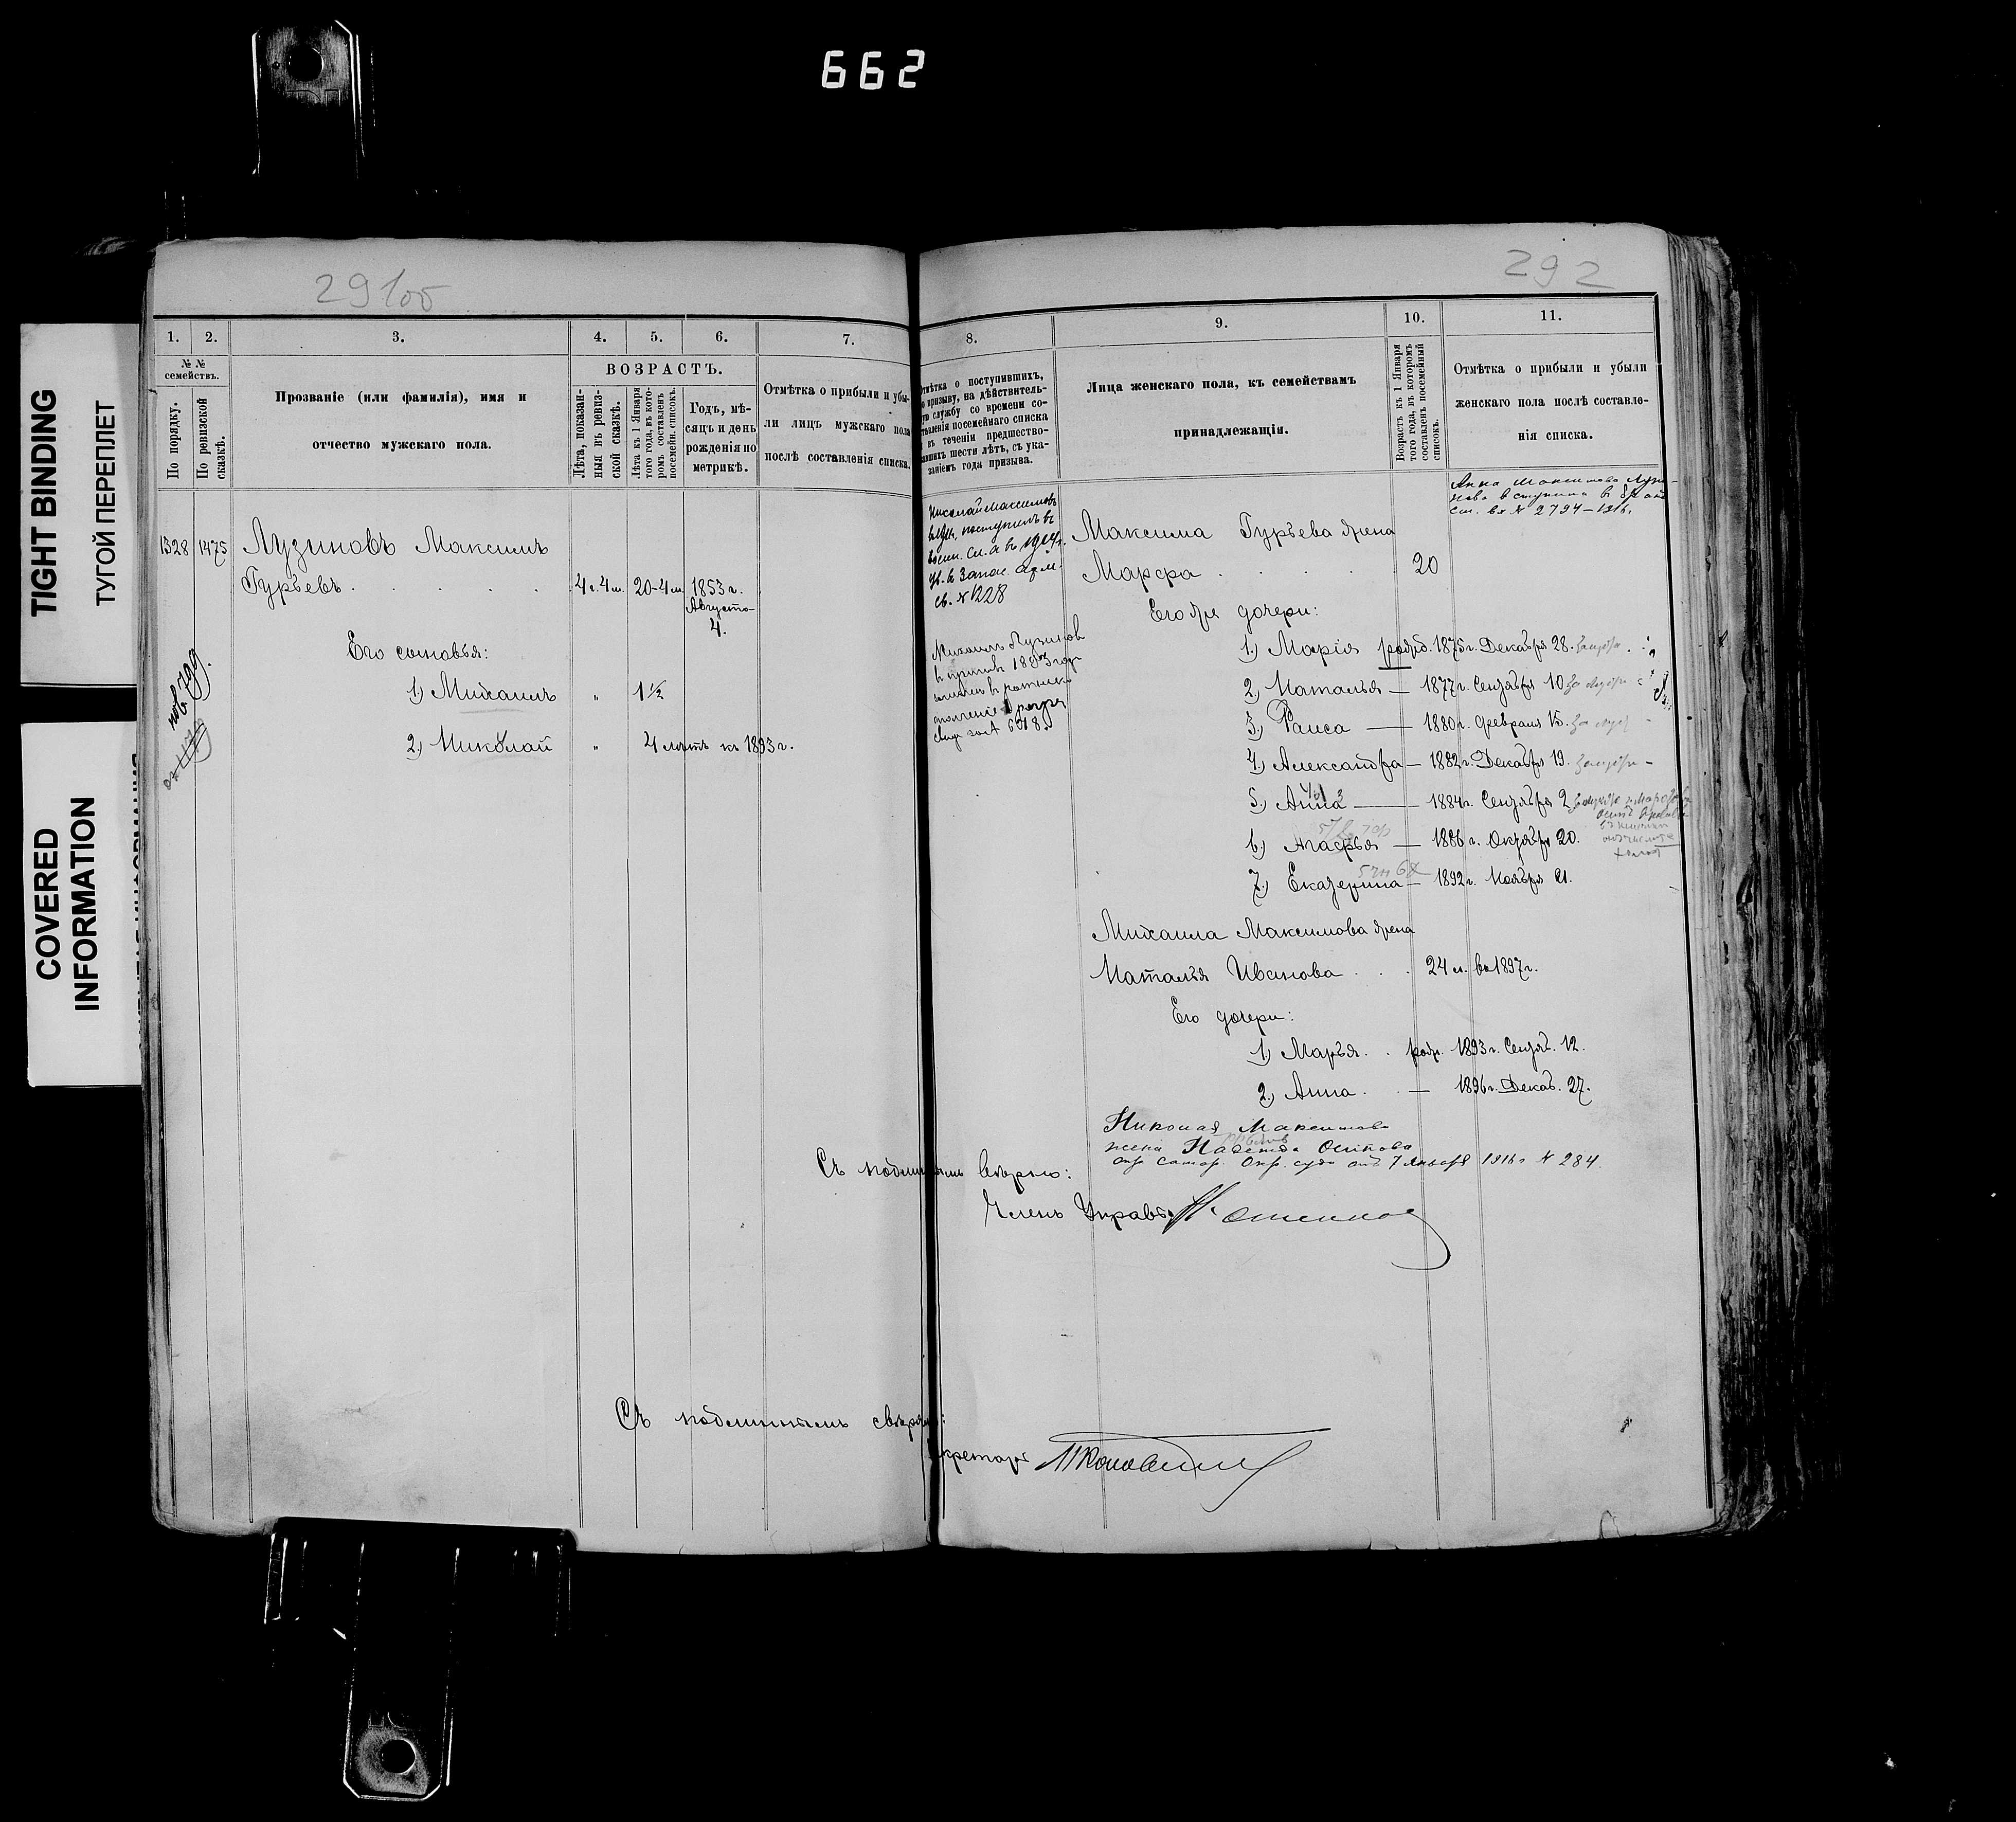 662
TIGHT BINDING
ТУГОЙ ПЕРЕПЛЕТ
COVERED
INFORMATION
291об
292
1.
2.
3.
4.
5.
6.
7.
8.
9.
10.
11.
№ №
семействъ.
По порядку.
По ревизской
сказкѣ.
Прозваніе (или фамилія), имя и
отчество мужскаго пола.
ВОЗРАСТЪ.
Лѣта, показан-
ныя въ ревиз-
ской сказкѣ.
Лѣта къ 1 Января
того года, въ кото-
ромъ составленъ
посемейн. списокъ.
Годъ, мѣ-
сяцъ и день
рожденія по
метрикѣ.
Отмѣтка о прибыли и убы-
ли лицъ мужскаго пола
послѣ составленія списка.
Отмѣтка о поступившихъ,
по призыву, на дѣйствитель-
службу со времени со-
ставленія посемейнаго списка
въ теченіи предшество-
вавшихъ шести лѣтъ, съ ука-
заніемъ года призыва.
Лица женскаго пола, къ семействамъ
принадлежащія.
Возрастъ къ 1 Января
того года, въ которомъ
составленъ посемейный
списокъ.
Отмѣтка о прибыли и убыли
женскаго пола послѣ составле-
нія списка.
1328 1475 Лузиновъ Максимъ
Гурьевъ 4 г. 4 м. 20-4 м 1853 г.
Августа
4.
Его сыновья:
1.) Михаилъ " 1 ½
2.) Николай " 4 лѣтъ къ 1893 г.
Николай Максимовъ
Луз. поступилъ въ
воен. сл. а въ 1914 г.
ув. в запас. арм.
св. № 1228
Михаилъ Лузинов
Анна Максимова Лузи-
нова вступила в бр.
№ 2794-1916.
Максима Гурьева жена
Марфа 20
Его же дочери:
1.) Марія рожд. 1875 г. Декабря 28. замуж.
2.) Наталья — 1877 г. Сентября 10 замуж
3.) Раиса — 1880 г. Февраля 15. замуж
4.) Александра — 1882 г. Декабря 19. замуж
5.) Анна — 1884 г. Сентября 2
6.) Агафья — 1886 г. Октября 20.
7.) Екатерина — 1892 г. Ноября 21.
Михаила Максимова жена
Наталья Иванова 24 л. въ 1897 г.
Его дочери:
1.) Марья рожд. 1893 г. Сентяб. 12.
2.) Анна — 1896 г. Декаб. 27.
Николая Максимова
жена Надежда Осипова
опр. Самар. Окр. суда от 7 Января 1916 г № 284.
Съ подлиннымъ вѣрно:
Членъ Управы
Съ подлиннымъ свѣрялъ:
Секретарь